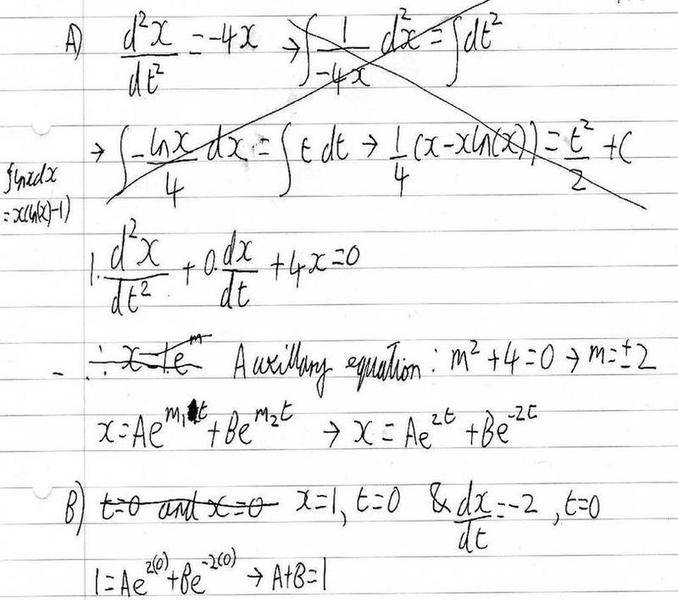 A) d²x/dt² = -4x → ∫ 1/-4x d²x = ∫dt²
→ ∫ -lnx/4 dx = ∫ t dt → 1/4 (x-xln(x)) = t²/2 + C
∫lnxdx
=x(ln(x)-1)
1. d²x/dt² + 0. dx/dt + 4x=0
∴ x=1e^m Auxillary equation: m²+4=0 → m=±2
x=Ae^m₁t + Be^m₂t → x = Ae^2t + Be^-2t
B) t=0 and x=0 x=1, t=0 & dx/dt = -2, t=0
1=Ae^2(0) + Be^-2(0) → A+B=1